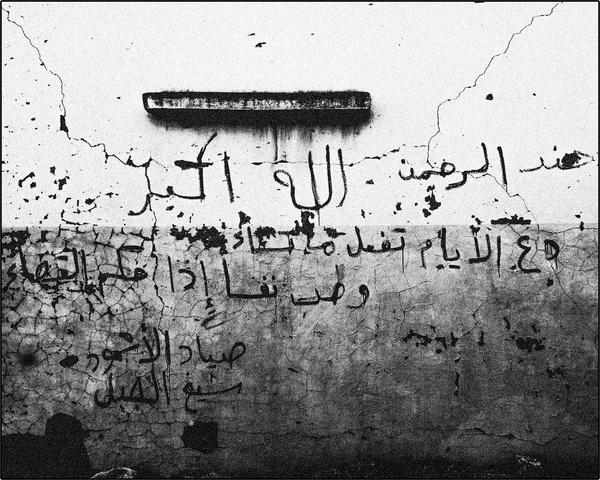 الرحمن
الله اكبر
دع الأيام تفعل ما تشاء
وطب نفسا إذا حكم القضاء
صياد الأسود
سبع